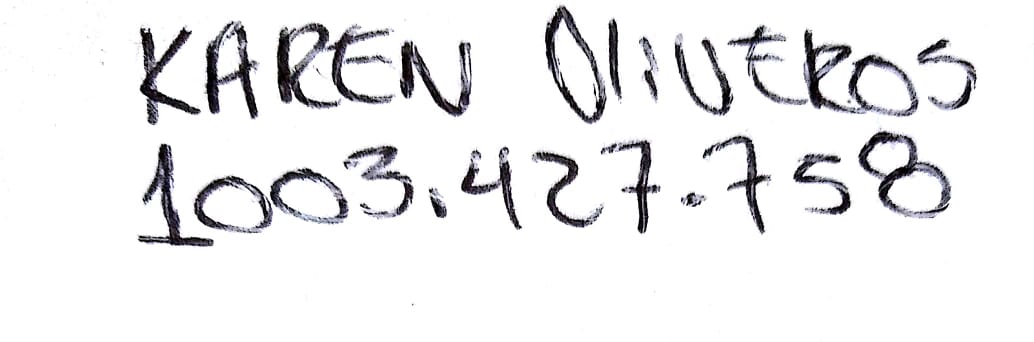 KAREN OliVEROS
1003.427.758